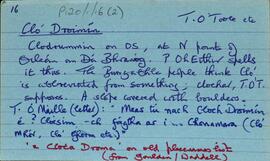 16 P20/1/6 (2) T. O'Toole etc
Cló Droimín
Clodrummin on OS, at N point of
Oileán on Dá Bhranóg. P OhEither spells
it thus. The Bungabhla people think Cló
is abbreviated from something; clochar, T.O'T.
supposes. A slope covered with boulders.
T. Ó Máille (letter): "Meas tú nach Cloch Droimín
é? Cloisim -ch fágtha as i gConamara (Cló
Mhór, Cló etc)"
"a Clocha Droma" on old placenames list
(from Goulden / Waddell)